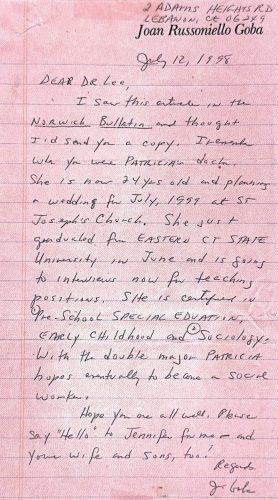 2 ADAMS HEIGHTS RD
LEBANON, CT 06249
Joan Russoniello Goba
July 12, 1998
DEAR DR LEE,
I saw this article in the
NORWICH BULLETIN and thought
I'd send you a copy. I remember
when you were PATRICIA'S doctor.
She is now 24 yrs old and planning
a wedding for July, 1999 at ST
Joseph's Church. She just
graduated from EASTERN CT STATE
University in June and is going
to interviews now for teaching
positions. SHe is certified in
Pre-School SPECIAL EDUATION,
EARLY CHildhood and Sociology.
With the double major PATRICIA
hopes eventually to become a SOCIAL
Worker.
Hope you are all well. Please
say "Hello" to Jennifer for me and
your wife and sons, too!
Regards
J Goba